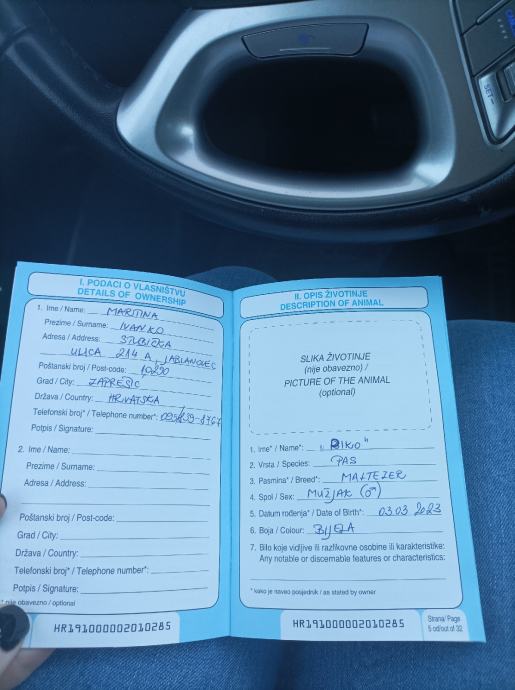 I. PODACI O VLASNIŠTVU
DETAILS OF OWNERSHIP
1. Ime / Name: MARTINA
Prezime / Surname: IVANKO
Adresa / Address: STUBIČKA
ULICA 214 A, JABLANOVEC
Poštanski broj / Post-code: 10290
Grad / City: ZAPREŠIĆ
Država / Country: HRVATSKA
Telefonski broj* / Telephone number*:
Potpis / Signature:
2. Ime / Name:
Prezime / Surname:
Adresa / Address:
Poštanski broj / Post-code:
Grad / City:
Država / Country:
Telefonski broj* / Telephone number*:
Potpis / Signature:
* nije obavezno / optional
HR191000002010285
II. OPIS ŽIVOTINJE
DESCRIPTION OF ANIMAL
SLIKA ŽIVOTINJE
(nije obavezno) /
PICTURE OF THE ANIMAL
(optional)
1. Ime* / Name*: "RIKO"
2. Vrsta / Species: PAS
3. Pasmina* / Breed*: MALTEZER
4. Spol / Sex: MUŽJAK (♂)
5. Datum rođenja* / Date of Birth*: 03.03 2023
6. Boja / Colour: BIJELA
7. Bilo koje vidljive ili razlikovne osobine ili karakteristike:
Any notable or discernable features or characteristics:
* kako je naveo posjednik / as stated by owner
HR191000002010285
Strana/ Page
5 od/out of 32
SET